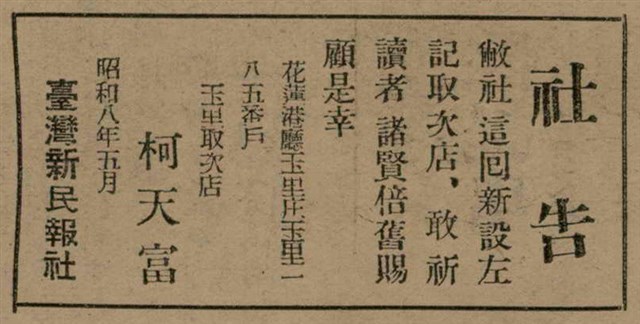 社告
敝社這囘新設左
記取次店、敢祈
讀者諸賢倍舊賜
顧是幸
花蓮港廳玉里庄玉里一
八五番戶
玉里取次店
柯天富
昭和八年五月
臺灣新民報社